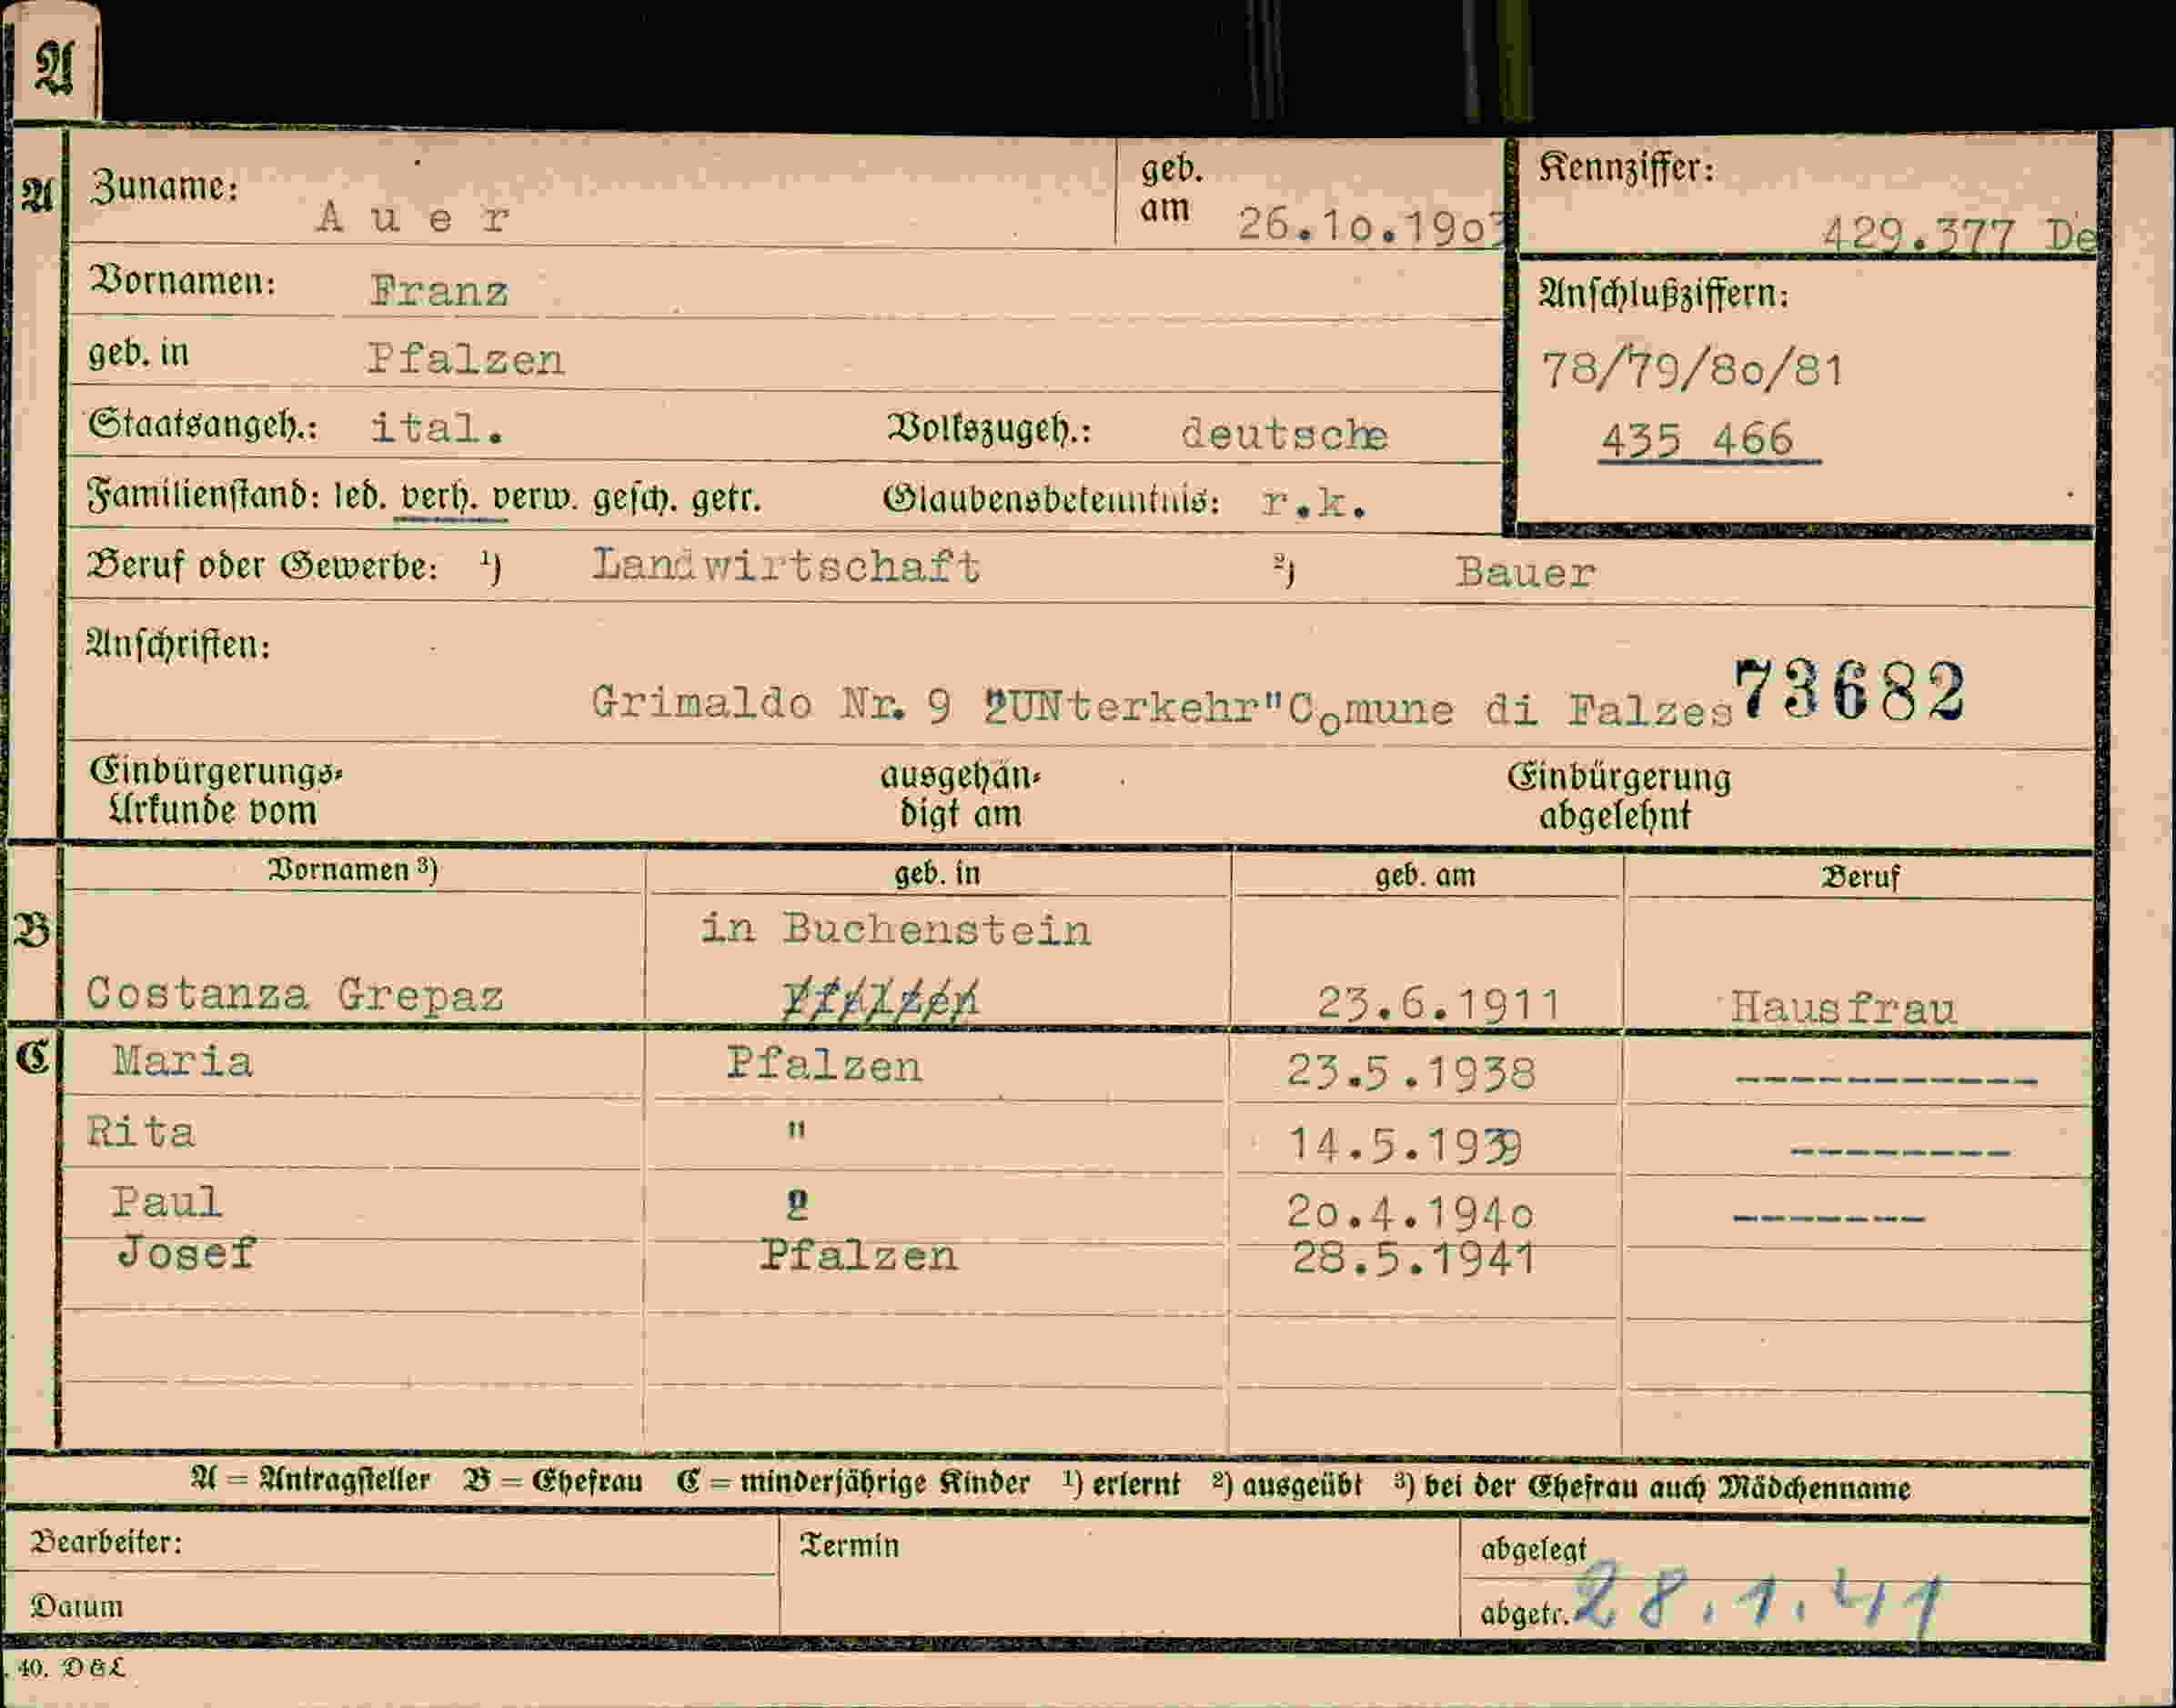 A
A
Zuname: A u e r
geb. am 26.10.1903
Kennziffer: 429.377 De
Vornamen: Franz
Anschlußziffern:
geb. in Pfalzen
78/79/80/81
Staatsangeh.: ital. Volkszugeh.: deutsche
435 466
Familienstand: led. verh. verw. gesch. getr. Glaubensbekenntnis: r.k.
Beruf oder Gewerbe: ¹) Landwirtschaft ²) Bauer
Anschriften:
Grimaldo Nr. 9 "UNterkehr"Comune di Falzes 73682
Einbürgerungs= ausgehän= Einbürgerung
Urkunde vom digt am abgelehnt
Vornamen ³) geb. in geb. am Beruf
B
in Buchenstein
Costanza Grepaz Pfalzen 23.6.1911 Hausfrau
C
Maria Pfalzen 23.5.1938 -----------
Rita " 14.5.1939 --------
Paul " 20.4.1940 -------
Josef Pfalzen 28.5.1941
A = Antragsteller B = Ehefrau C = minderjährige Kinder ¹) erlernt ²) ausgeübt ³) bei der Ehefrau auch Mädchenname
Bearbeiter: Termin abgelegt
Datum abgetr. 28.1.41
40. D & L